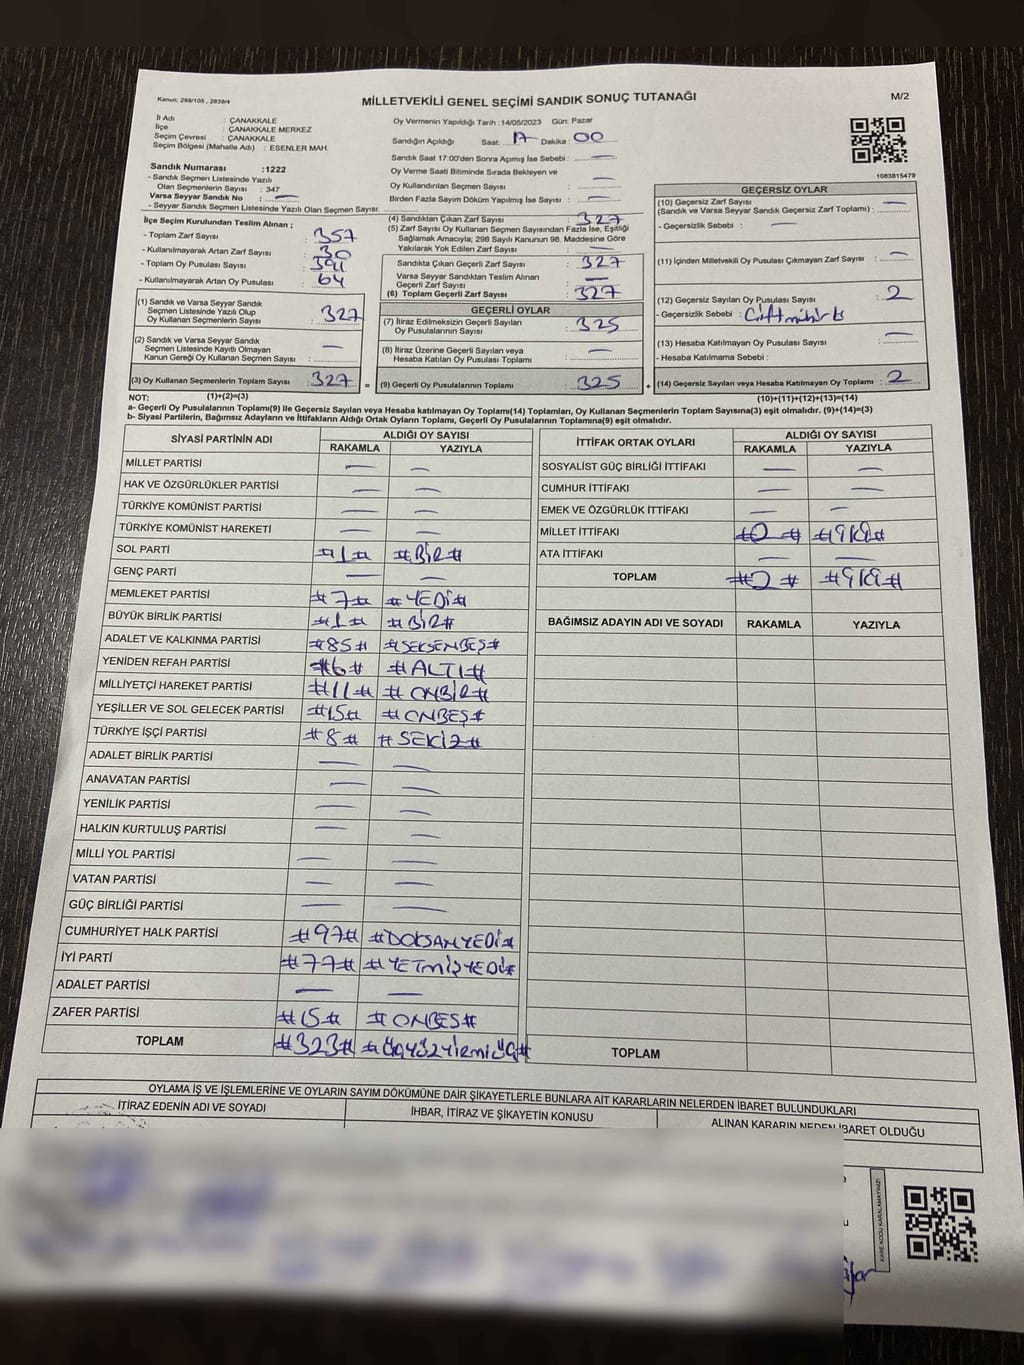 Kanun: 298/105 , 2839/4
MİLLETVEKİLİ GENEL SEÇİMİ SANDIK SONUÇ TUTANAĞI
M/2
İl Adı : ÇANAKKALE
İlçe : ÇANAKKALE MERKEZ
Seçim Çevresi : ÇANAKKALE
Seçim Bölgesi (Mahalle Adı) : ESENLER MAH.
Sandık Numarası :1222
- Sandık Seçmen Listesinde Yazılı
Olan Seçmenlerin Sayısı : 347
Varsa Seyyar Sandık No : —
- Seyyar Sandık Seçmen Listesinde Yazılı Olan Seçmen Sayısı:
İlçe Seçim Kurulundan Teslim Alınan ;
- Toplam Zarf Sayısı : 357
- Kullanılmayarak Artan Zarf Sayısı : 30
- Toplam Oy Pusulası Sayısı : 391
- Kullanılmayarak Artan Oy Pusulası : 64
(1) Sandık ve Varsa Seyyar Sandık
Seçmen Listesinde Yazılı Olup
Oy Kullanan Seçmenlerin Sayısı : 327
(2) Sandık ve Varsa Seyyar Sandık
Seçmen Listesinde Kayıtlı Olmayan
Kanun Gereği Oy Kullanan Seçmen Sayısı : —
(3) Oy Kullanan Seçmenlerin Toplam Sayısı : 327 =
Oy Vermenin Yapıldığı Tarih :14/05/2023 Gün: Pazar
Sandığın Açıldığı Saat: 17 Dakika : 00
Sandık Saat 17:00'den Sonra Açımış İse Sebebi : —
Oy Verme Saati Bitiminde Sırada Bekleyen ve
Oy Kullandırılan Seçmen Sayısı : —
Birden Fazla Sayım Döküm Yapılmış İse Sayısı : —
(4) Sandıktan Çıkan Zarf Sayısı : 327
(5) Zarf Sayısı Oy Kullanan Seçmen Sayısından Fazla İse, Eşitliği
Sağlamak Amacıyla; 298 Sayılı Kanunun 98. Maddesine Göre
Yakılarak Yok Edilen Zarf Sayısı : —
Sandıkta Çıkan Geçerli Zarf Sayısı : 327
Varsa Seyyar Sandıktan Teslim Alınan
Geçerli Zarf Sayısı : —
(6) Toplam Geçerli Zarf Sayısı : 327
GEÇERLİ OYLAR
(7) İtiraz Edilmeksizin Geçerli Sayılan
Oy Pusulalarının Sayısı : 325
(8) İtiraz Üzerine Geçerli Sayılan veya
Hesaba Katılan Oy Pusulası Toplamı : —
(9) Geçerli Oy Pusulalarının Toplamı : 325 +
1083815479
GEÇERSİZ OYLAR
(10) Geçersiz Zarf Sayısı
(Sandık ve Varsa Seyyar Sandık Geçersiz Zarf Toplamı) : —
- Geçersizlik Sebebi : —
(11) İçinden Milletvekili Oy Pusulası Çıkmayan Zarf Sayısı : —
(12) Geçersiz Sayılan Oy Pusulası Sayısı : 2
- Geçersizlik Sebebi :
(13) Hesaba Katılmayan Oy Pusulası Sayısı : —
- Hesaba Katılmama Sebebi :
(14) Geçersiz Sayılan veya Hesaba Katılmayan Oy Toplamı : 2
NOT: (1)+(2)=(3) (10)+(11)+(12)+(13)=(14)
a- Geçerli Oy Pusulalarının Toplamı(9) ile Geçersiz Sayılan veya Hesaba katılmayan Oy Toplamı(14) Toplamları, Oy Kullanan Seçmenlerin Toplam Sayısına(3) eşit olmalıdır. (9)+(14)=(3)
b- Siyasi Partilerin, Bağımsız Adayların ve İttifakların Aldığı Ortak Oyların Toplamı, Geçerli Oy Pusulalarının Toplamına(9) eşit olmalıdır.
SİYASİ PARTİNİN ADI ALDIĞI OY SAYISI
RAKAMLA YAZIYLA
MİLLET PARTİSİ — —
HAK VE ÖZGÜRLÜKLER PARTİSİ — —
TÜRKİYE KOMÜNİST PARTİSİ — —
TÜRKİYE KOMÜNİST HAREKETİ — —
SOL PARTİ #1# #BİR#
GENÇ PARTİ — —
MEMLEKET PARTİSİ #7# #YEDİ#
BÜYÜK BİRLİK PARTİSİ #1# #BİR#
ADALET VE KALKINMA PARTİSİ #85# #SEKSENBEŞ#
YENİDEN REFAH PARTİSİ #6# #ALTI#
MİLLİYETÇİ HAREKET PARTİSİ #11# #ONBİR#
YEŞİLLER VE SOL GELECEK PARTİSİ #15# #ONBEŞ#
TÜRKİYE İŞÇİ PARTİSİ #8# #SEKİZ#
ADALET BİRLİK PARTİSİ — —
ANAVATAN PARTİSİ — —
YENİLİK PARTİSİ — —
HALKIN KURTULUŞ PARTİSİ — —
MİLLİ YOL PARTİSİ — —
VATAN PARTİSİ — —
GÜÇ BİRLİĞİ PARTİSİ — —
CUMHURİYET HALK PARTİSİ #97# #DOKSANYEDİ#
İYİ PARTİ #77# #YETMİŞYEDİ#
ADALET PARTİSİ — —
ZAFER PARTİSİ #15# #ONBEŞ#
TOPLAM #323# #ÜÇYÜZYİRMİÜÇ#
İTTİFAK ORTAK OYLARI ALDIĞI OY SAYISI
RAKAMLA YAZIYLA
SOSYALİST GÜÇ BİRLİĞİ İTTİFAKI — —
CUMHUR İTTİFAKI — —
EMEK VE ÖZGÜRLÜK İTTİFAKI — —
MİLLET İTTİFAKI #2# #İKİ#
ATA İTTİFAKI — —
TOPLAM #2# #İKİ#
BAĞIMSIZ ADAYIN ADI VE SOYADI RAKAMLA YAZIYLA
TOPLAM
OYLAMA İŞ VE İŞLEMLERİNE VE OYLARIN SAYIM DÖKÜMÜNE DAİR ŞİKAYETLERLE BUNLARA AİT KARARLARIN NELERDEN İBARET BULUNDUKLARI
İTİRAZ EDENİN ADI VE SOYADI İHBAR, İTİRAZ VE ŞİKAYETİN KONUSU ALINAN KARARIN NEDEN İBARET OLDUĞU
KARE KODU KARALAMAYINIZ!